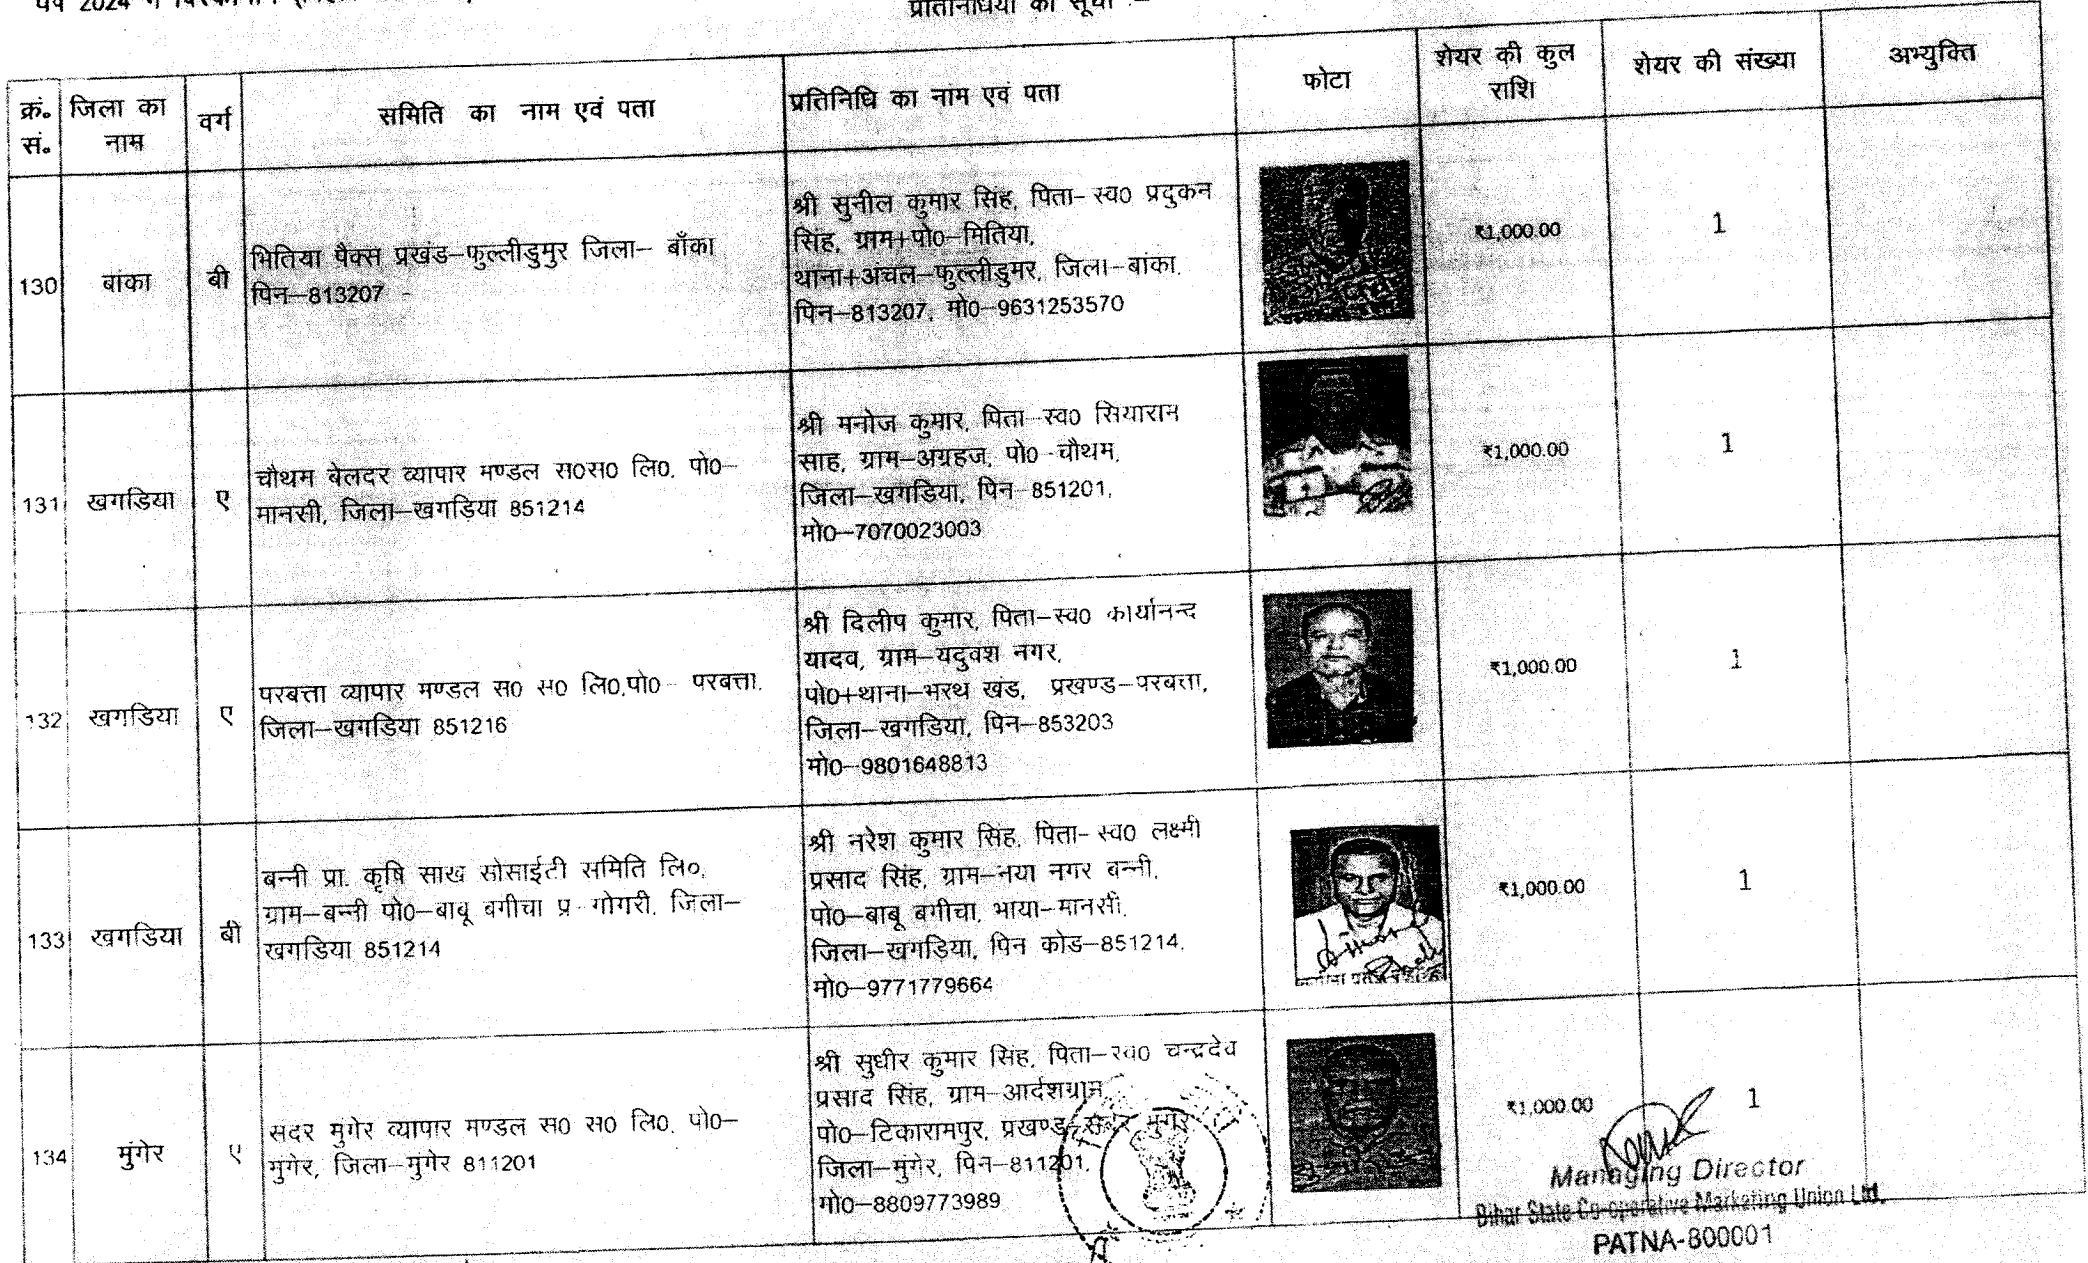 2024
प्रतिनिधियों की सूची :-
क्रं. सं.
जिला का नाम
वर्ग
समिति का नाम एवं पता
प्रतिनिधि का नाम एवं पता
फोटा
शेयर की कुल राशि
शेयर की संख्या
अभ्युक्ति
130
बांका
बी
भितिया पैक्स प्रखंड–फुल्लीडुमुर जिला– बाँका
पिन–813207
श्री सुनील कुमार सिंह, पिता– स्व0 प्रदुकन
सिंह, ग्राम+पो0–मितिया,
थाना+अंचल–फुल्लीडुमर, जिला–बांका,
पिन–813207, मो0–9631253570
₹1,000.00
1
131
खगडिया
ए
चौथम बेलदर व्यापार मण्डल स0स0 लि0, पो0–
मानसी, जिला–खगड़िया 851214
श्री मनोज कुमार, पिता–स्व0 सियाराम
साह, ग्राम–अग्रहज, पो0–चौथम,
जिला–खगडिया, पिन–851201,
मो0–7070023003
₹1,000.00
1
132
खगडिया
ए
परबत्ता व्यापार मण्डल स0 स0 लि0,पो0– परबत्ता,
जिला–खगडिया 851216
श्री दिलीप कुमार, पिता–स्व0 कार्यानन्द
यादव, ग्राम–यदुवश नगर,
पो0+थाना–भरथ खंड, प्रखण्ड–परबत्ता,
जिला–खगडिया, पिन–853203
मो0–9801648813
₹1,000.00
1
133
खगडिया
बी
बन्नी प्रा. कृषि साख सोसाईटी समिति लि०,
ग्राम–बन्नी पो0–बाबू बगीचा प्र गोगरी, जिला–
खगडिया 851214
श्री नरेश कुमार सिंह, पिता– स्व0 लक्ष्मी
प्रसाद सिंह, ग्राम–नया नगर बन्नी,
पो0–बाबू बगीचा, भाया–मानसी,
जिला–खगडिया, पिन कोड–851214,
मो0–9771779664
₹1,000.00
1
134
मुंगेर
ए
सदर मुगेर व्यापार मण्डल स0 स0 लि0, पो0–
मुगेर, जिला–मुगेर 811201
श्री सुधीर कुमार सिंह, पिता–स्व0 चन्द्रदेव
प्रसाद सिंह, ग्राम–आर्दशग्राम,
पो0–टिकारामपुर, प्रखण्ड–सदर मुगर
जिला–मुगेर, पिन–811201,
मो0–8809773989
₹1,000.00
1
Managing Director
Bihar State Co-operative Marketing Union Ltd.
PATNA-800001